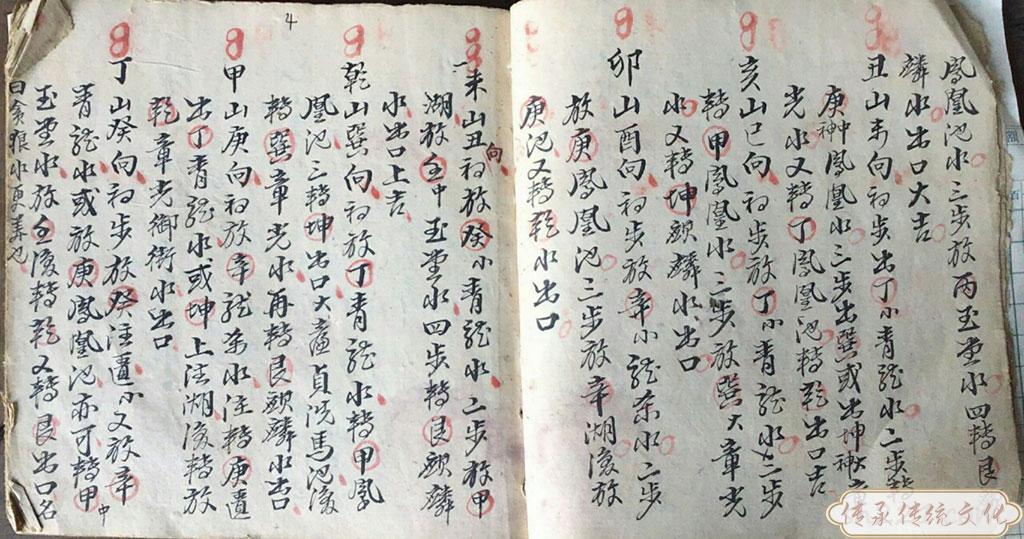 鳳凰池水三步放丙玉堂水四轉艮
麟水出口大吉
丑山未向初步出丁小青龍水二步轉
庚中神鳳凰水三步出巽或出坤大章
光水又轉丁鳳凰池轉乾出口吉
亥山巳向初步放丁小青龍水二步
轉甲鳳凰水三步放巽大章光
水又轉坤麒麟水出口
卯山酉向初步放辛小龍樂水二步
放庚鳳凰池三步放辛湖後放
庚池又轉乾水出口
4
未山丑向初放癸小青龍水二步放甲
湖放壬中玉堂水四步轉艮麒麟
水出口上吉
乾山巽向初放丁青龍水轉甲鳳
凰池三轉坤出口大廉貞洗馬池後
轉巽章光水再轉艮麒麟水吉
甲山庚向初放辛龍樂水注轉庚
出丁青龍水或坤上注湖後轉放
乾章光御街水出口
丁山癸向初步放癸注小又放辛
青龍水或放庚鳳凰池亦可轉甲中
玉堂水放壬後轉乾又轉艮出口名
曰貪狼水更美也
傳承傳統文化